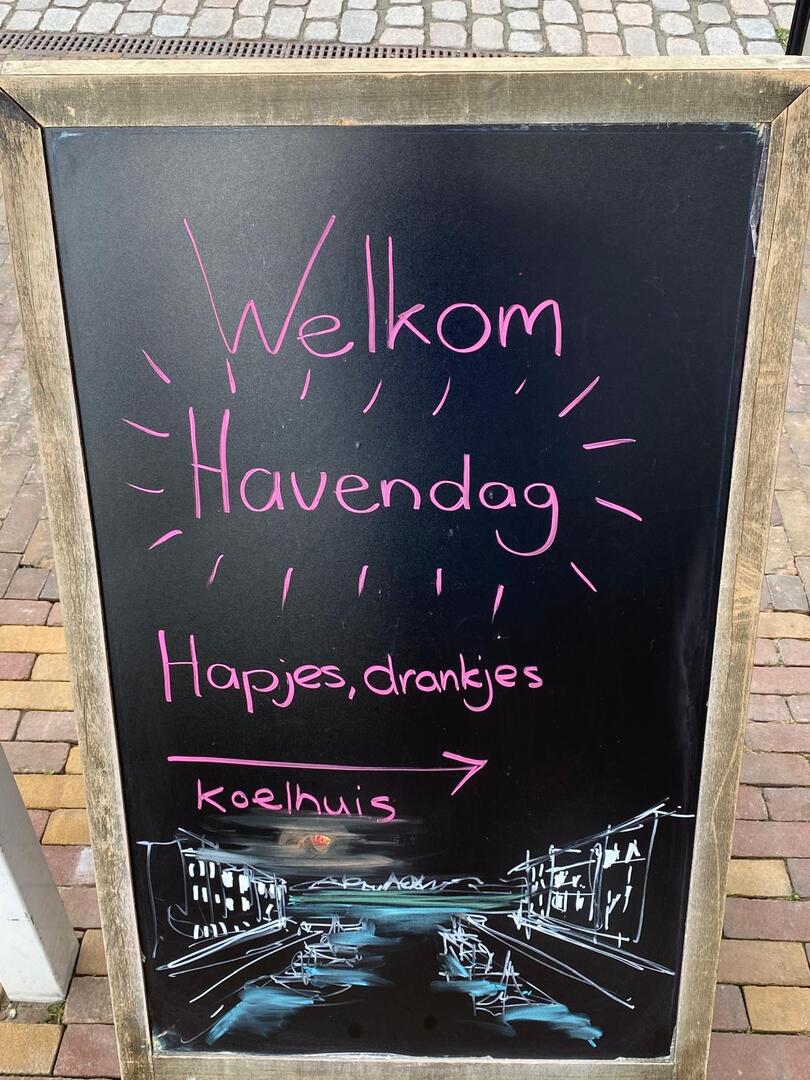 Welkom
Havendag
Hapjes, drankjes
koelhuis